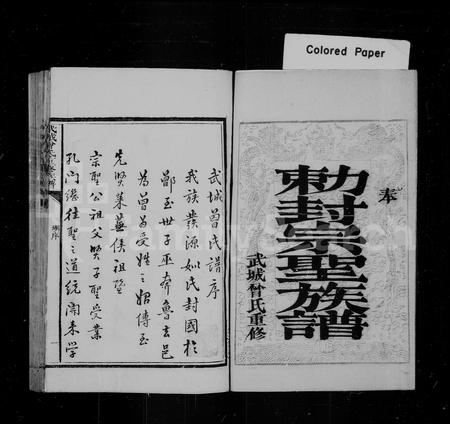 Colored Paper
奉
勅封宗聖族譜
武城曾氏重修
武城曾氏譜序
我族發源姒氏封國於
鄫至世子巫奔魯去邑
為曾為受姓之始傳至
先賢萊蕪侯祖暨
宗聖公祖父賢子聖受業
孔門繼往聖之道統開来学